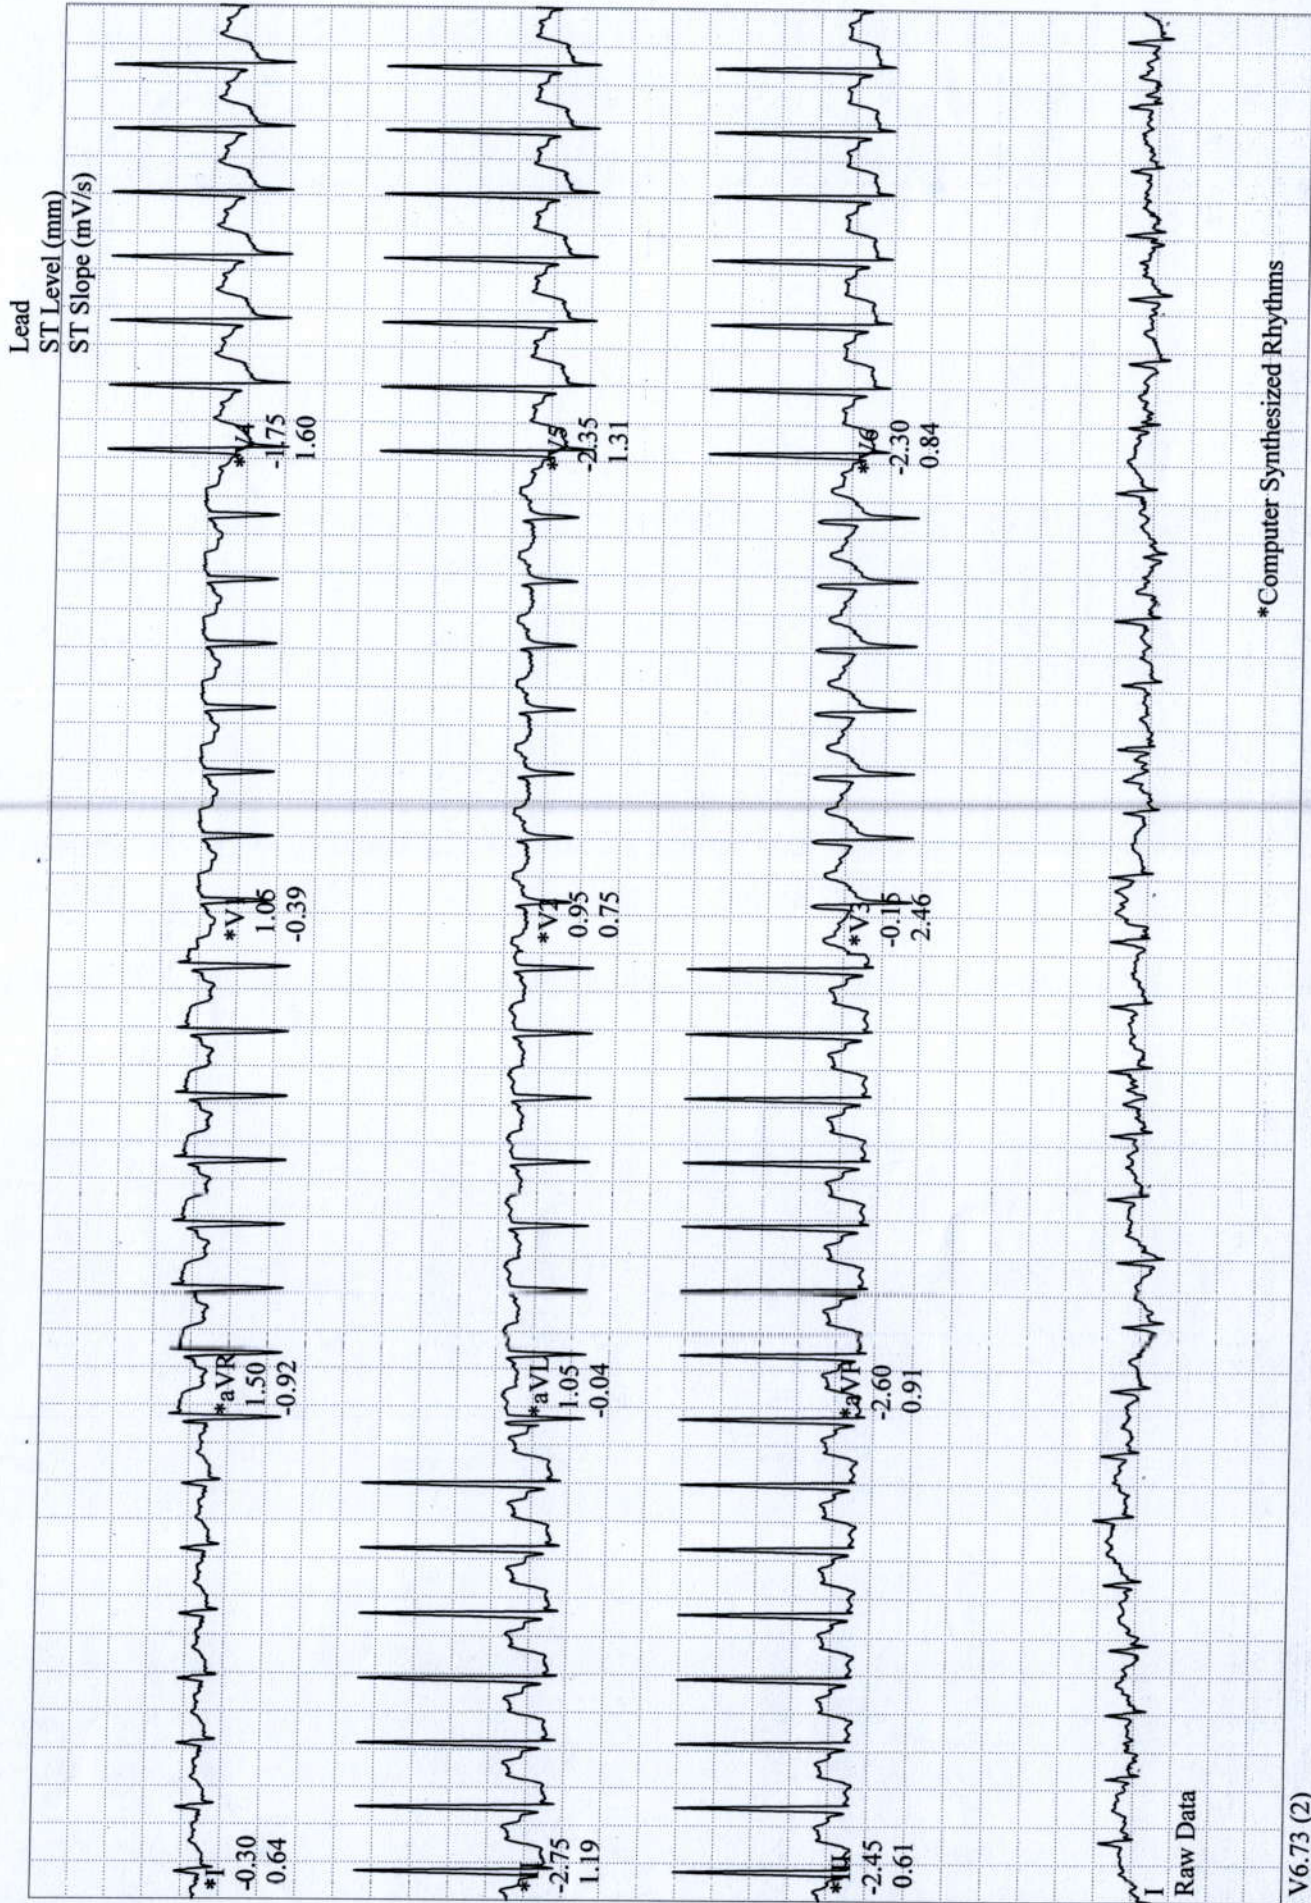 Lead
ST Level (mm)
ST Slope (mV/s)
*I
-0.30
0.64
*aVR
1.50
-0.92
*V1
1.05
-0.39
*V4
-1.75
1.60
*II
-2.75
1.19
*aVL
1.05
-0.04
*V2
0.95
0.75
*V5
-2.35
1.31
*III
-2.45
0.61
*aVF
-2.60
0.91
*V3
-0.15
2.46
*V6
-2.30
0.84
I
Raw Data
*Computer Synthesized Rhythms
V6.73 (2)